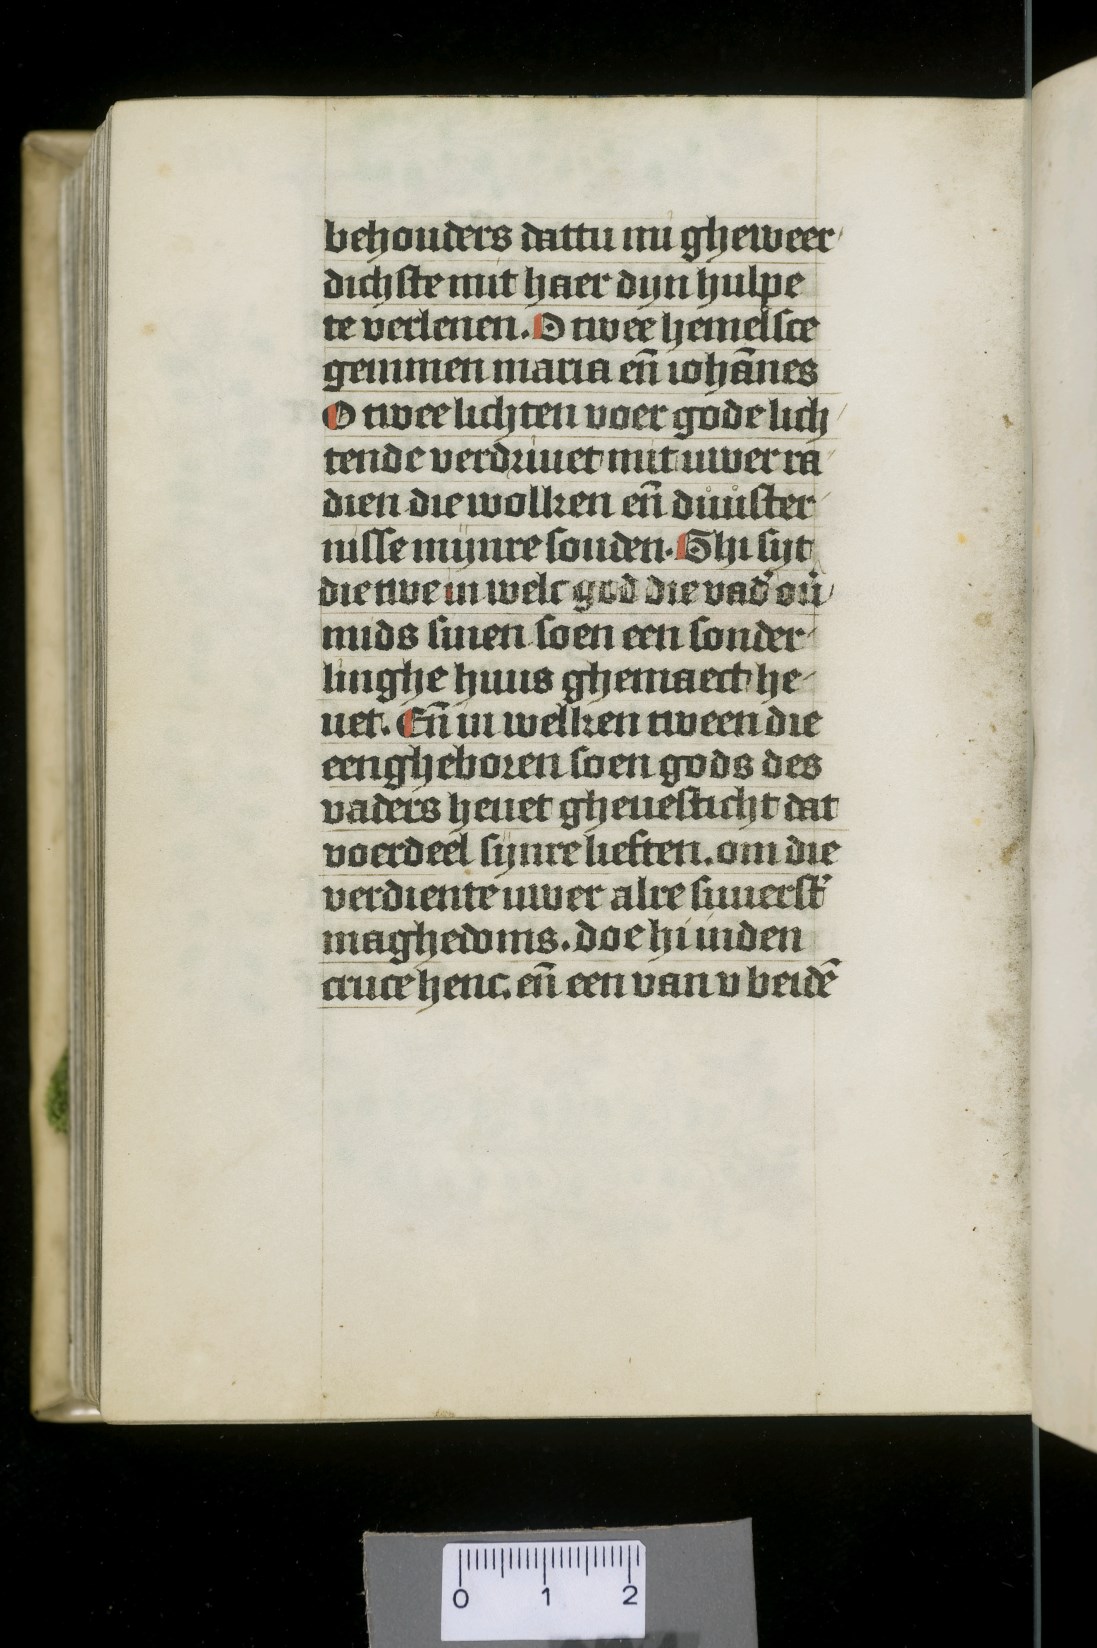 behouders dattu mi gheweer/
dichste mit haer dyn hulpe
te verlenen. O twee hemelsce
gemmen maria en̄ iohānes
O twee lichten voer gode lich/
tende verdriuet mit uwer ra
dien die wolken en̄ duuster/
nisse mijnre sonden. Ghi syt
die twe in welc god die vad' ou̾/
mids sinen soen een sonder/
linghe huus ghemaect he/
uet. En̄ in welken tween die
eengheboren soen gods des
vaders heuet gheuesticht dat
voerdeel sijnre lieften. om die
verdiente uwer alre suuerst'
maghedoms. doe hi inden
cruce henc. en̄ een van v beidē
0 1 2